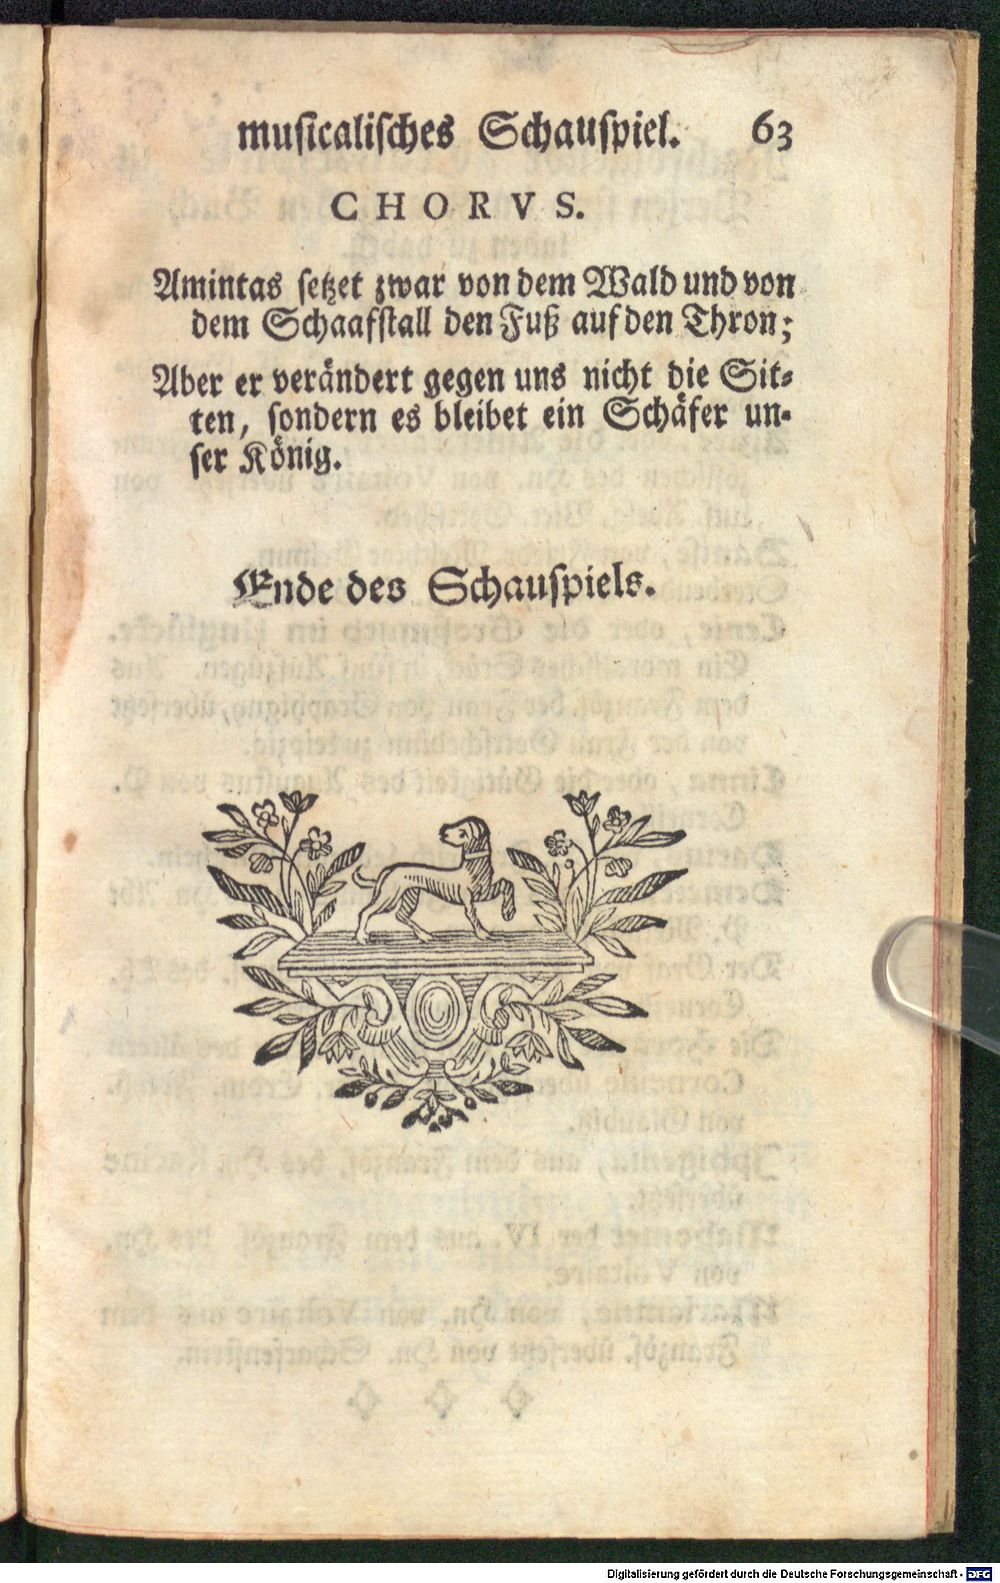 musicalisches Schauspiel. 63
CHORVS.
Amintas setzet zwar von dem Wald und von
dem Schaafstall den Fuß auf den Thron;
Aber er verändert gegen uns nicht die Sit-
ten, sondern es bleibet ein Schäfer un-
ser König.
Ende des Schauspiels.
Digitalisierung gefördert durch die Deutsche Forschungsgemeinschaft - DFG